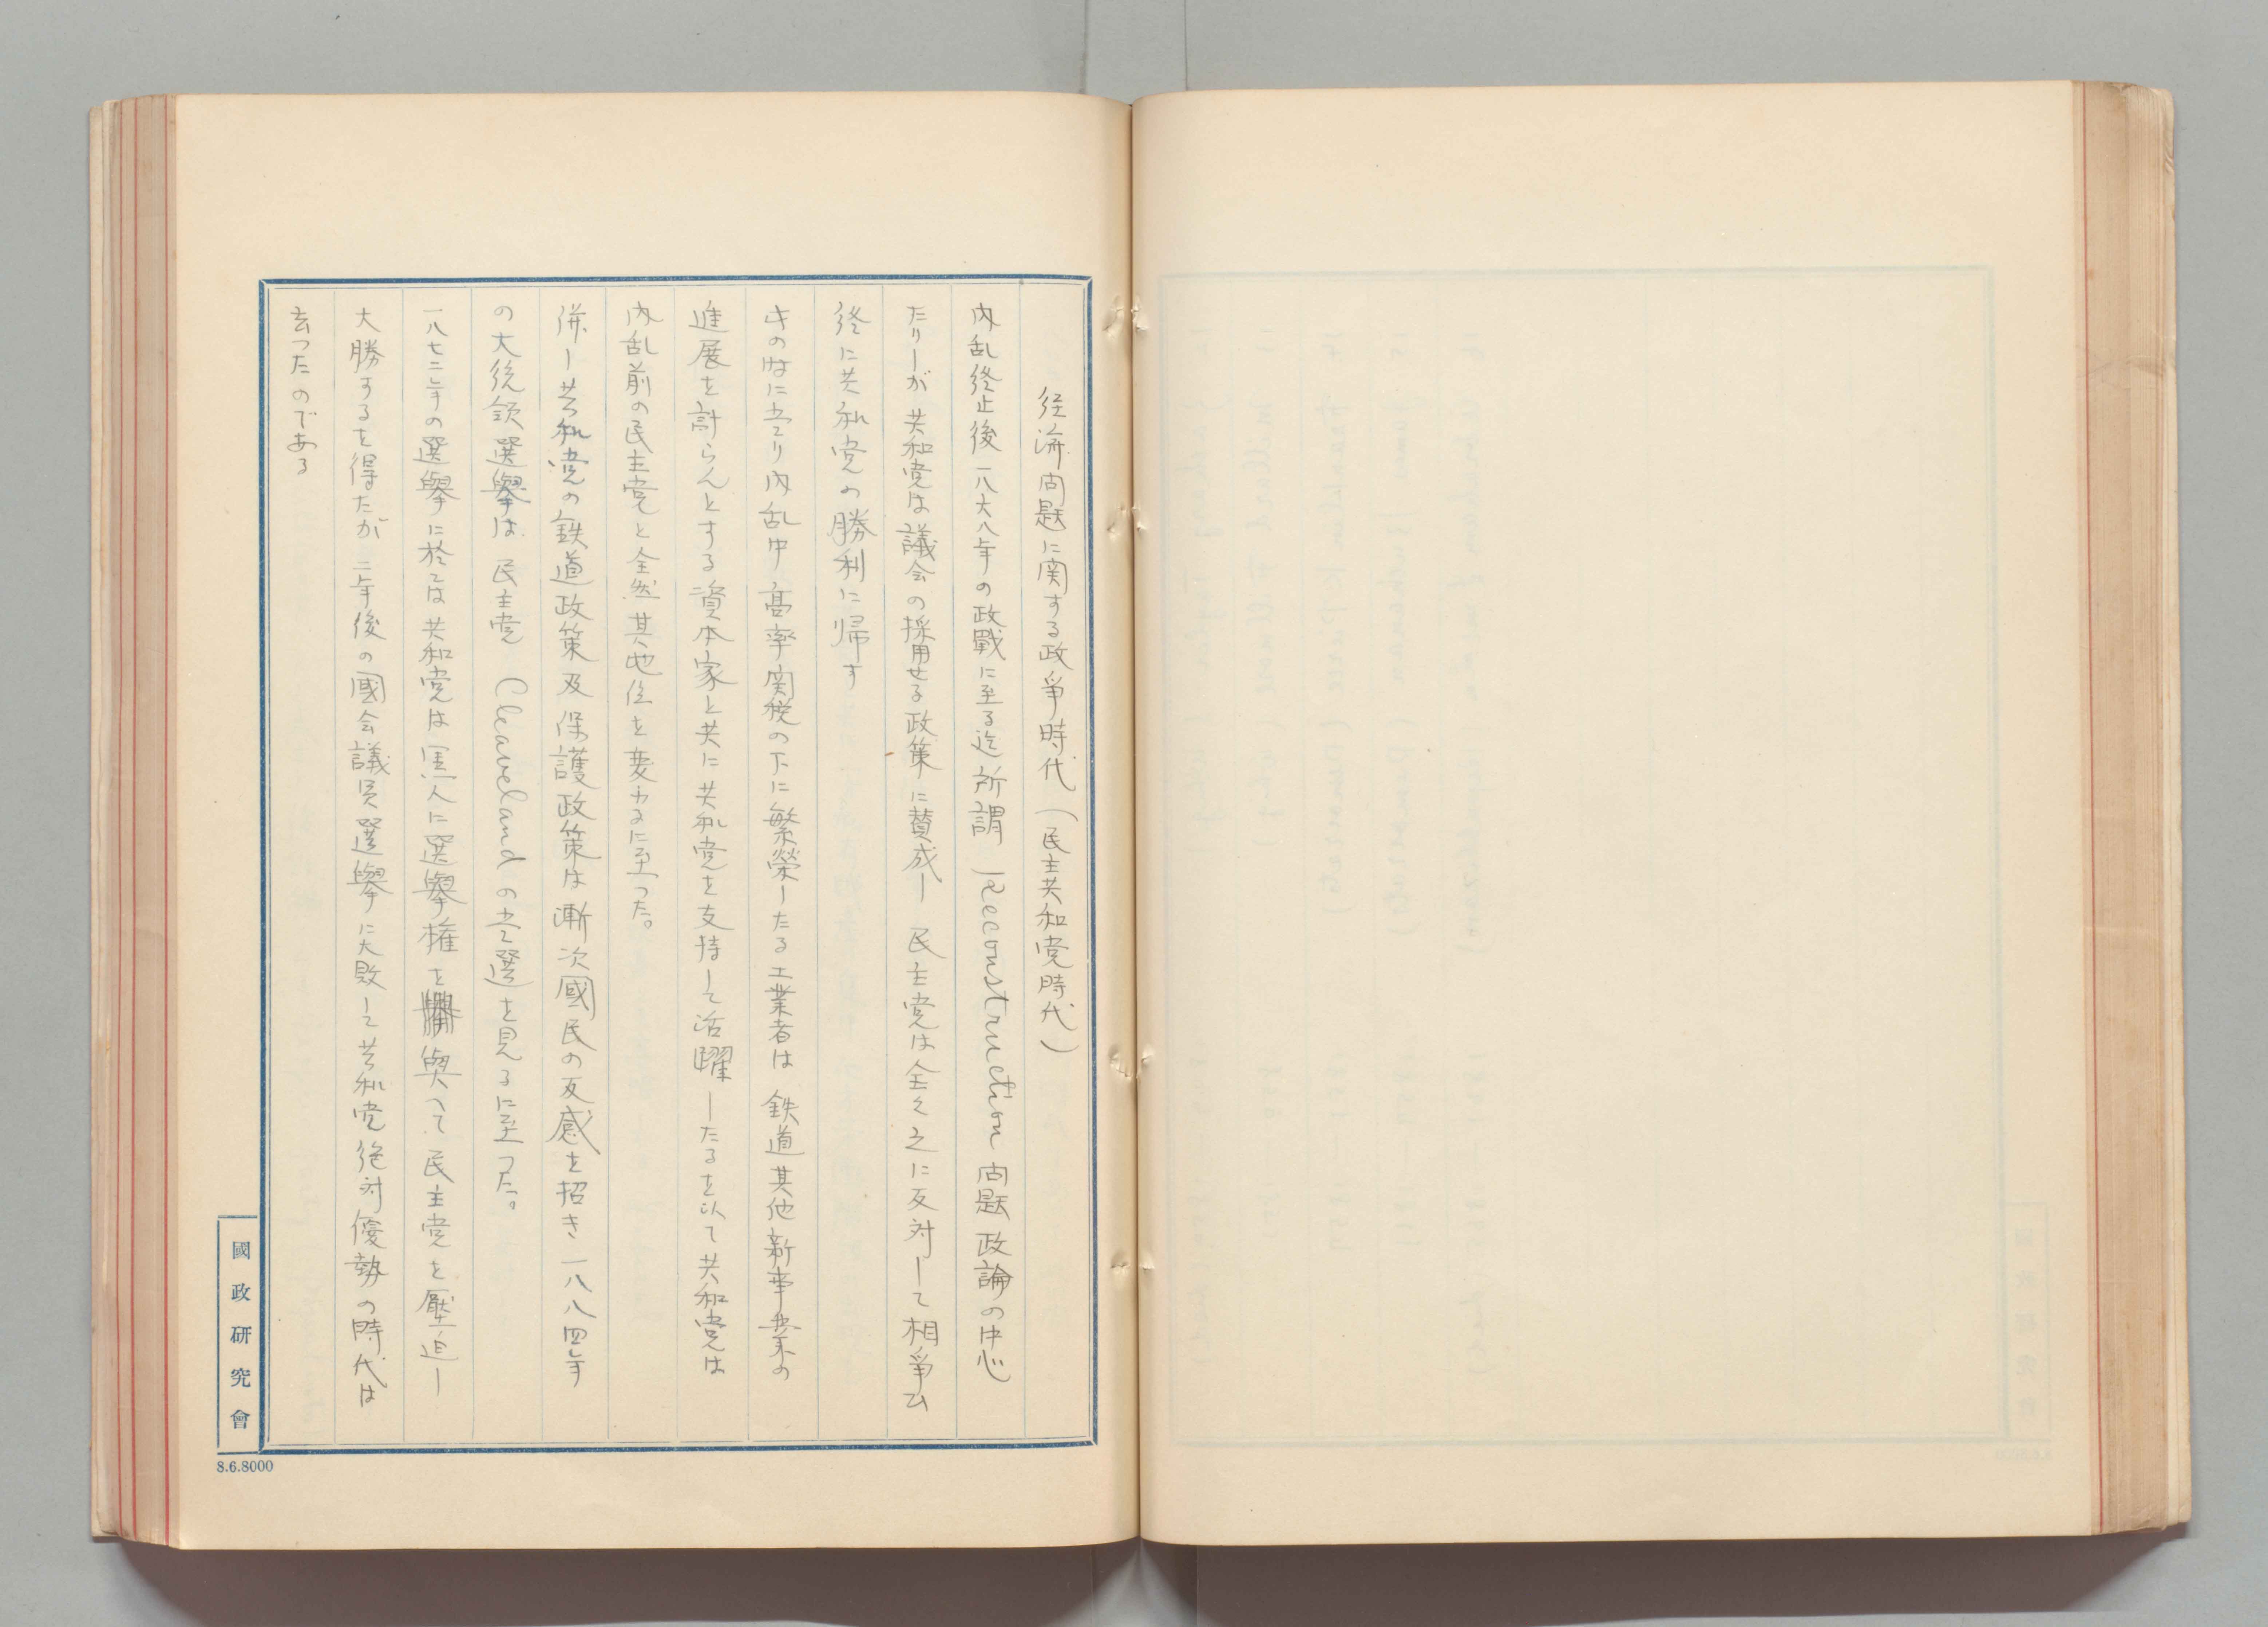 経済問題に関する政爭時代（民主共和党時代）
内乱終止後一八六八年の政戰に至る迄所謂 Reconstruction 問題政論の中心
たりしが 共和党は議会の採用せる政策に賛成し 民主党は全く之に反対して相爭ひ
終に共和党の勝利に帰す
内乱中 高率関税の下に繁榮したる工業者は 鉄道其他新事業の
進展を計らんとする資本家と共に共和党を支持して活躍したるを以て共和党は
内乱前の民主党と全然其地位を変ふるに至つた。
併し共和党の鉄道政策及保護政策は漸次國民の反感を招き一八八四年
の大統領選擧は 民主党 Cleaveland の立選を見るに至つた。
一八七二年の選擧に於ては共和党は黒人に選擧権を與へて民主党を壓迫し
大勝するを得たが 二年後の國会議員選擧に大敗して共和党絶対優勢の時代は
去つたのである
國政研究會
8.6.8000